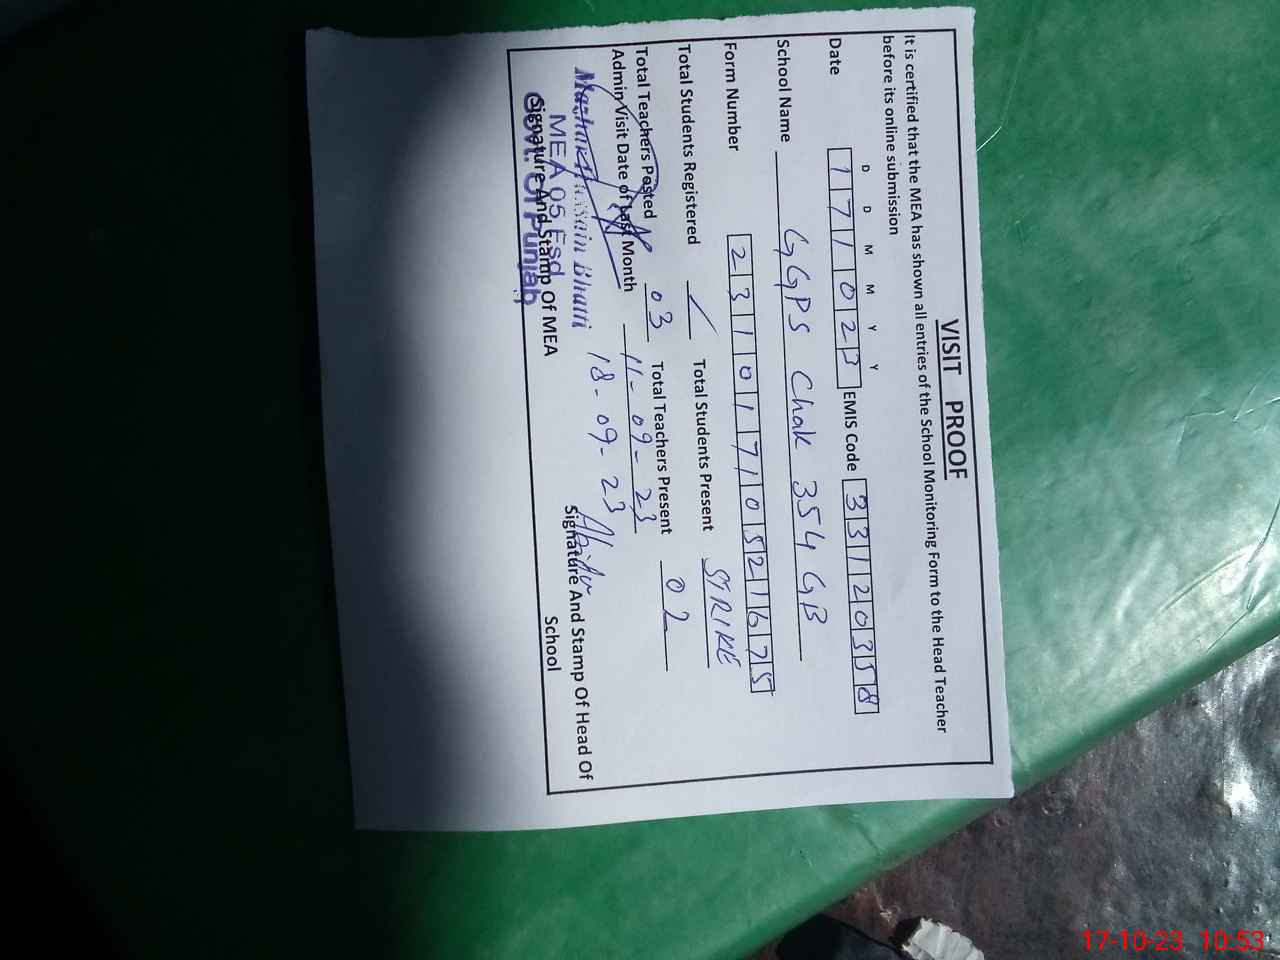 VISIT PROOF
It is certified that the MEA has shown all entries of the School Monitoring Form to the Head Teacher
before its online submission
D D M M Y Y
Date 171023 EMIS Code 33120358
School Name GGPS Chak 354 GB
Form Number 2310171052167 5
Total Students Registered / Total Students Present STRIKE
Total Teachers Posted 03 Total Teachers Present 02
Admin Visit Date of Last Month 11-09-23
18-09-23
Mazhar Hussain Bhatti
MEA 05 Fsd
Govt. Of Punjab
Signature And Stamp Of MEA
Signature And Stamp Of Head Of
School
17-10-23 10:53